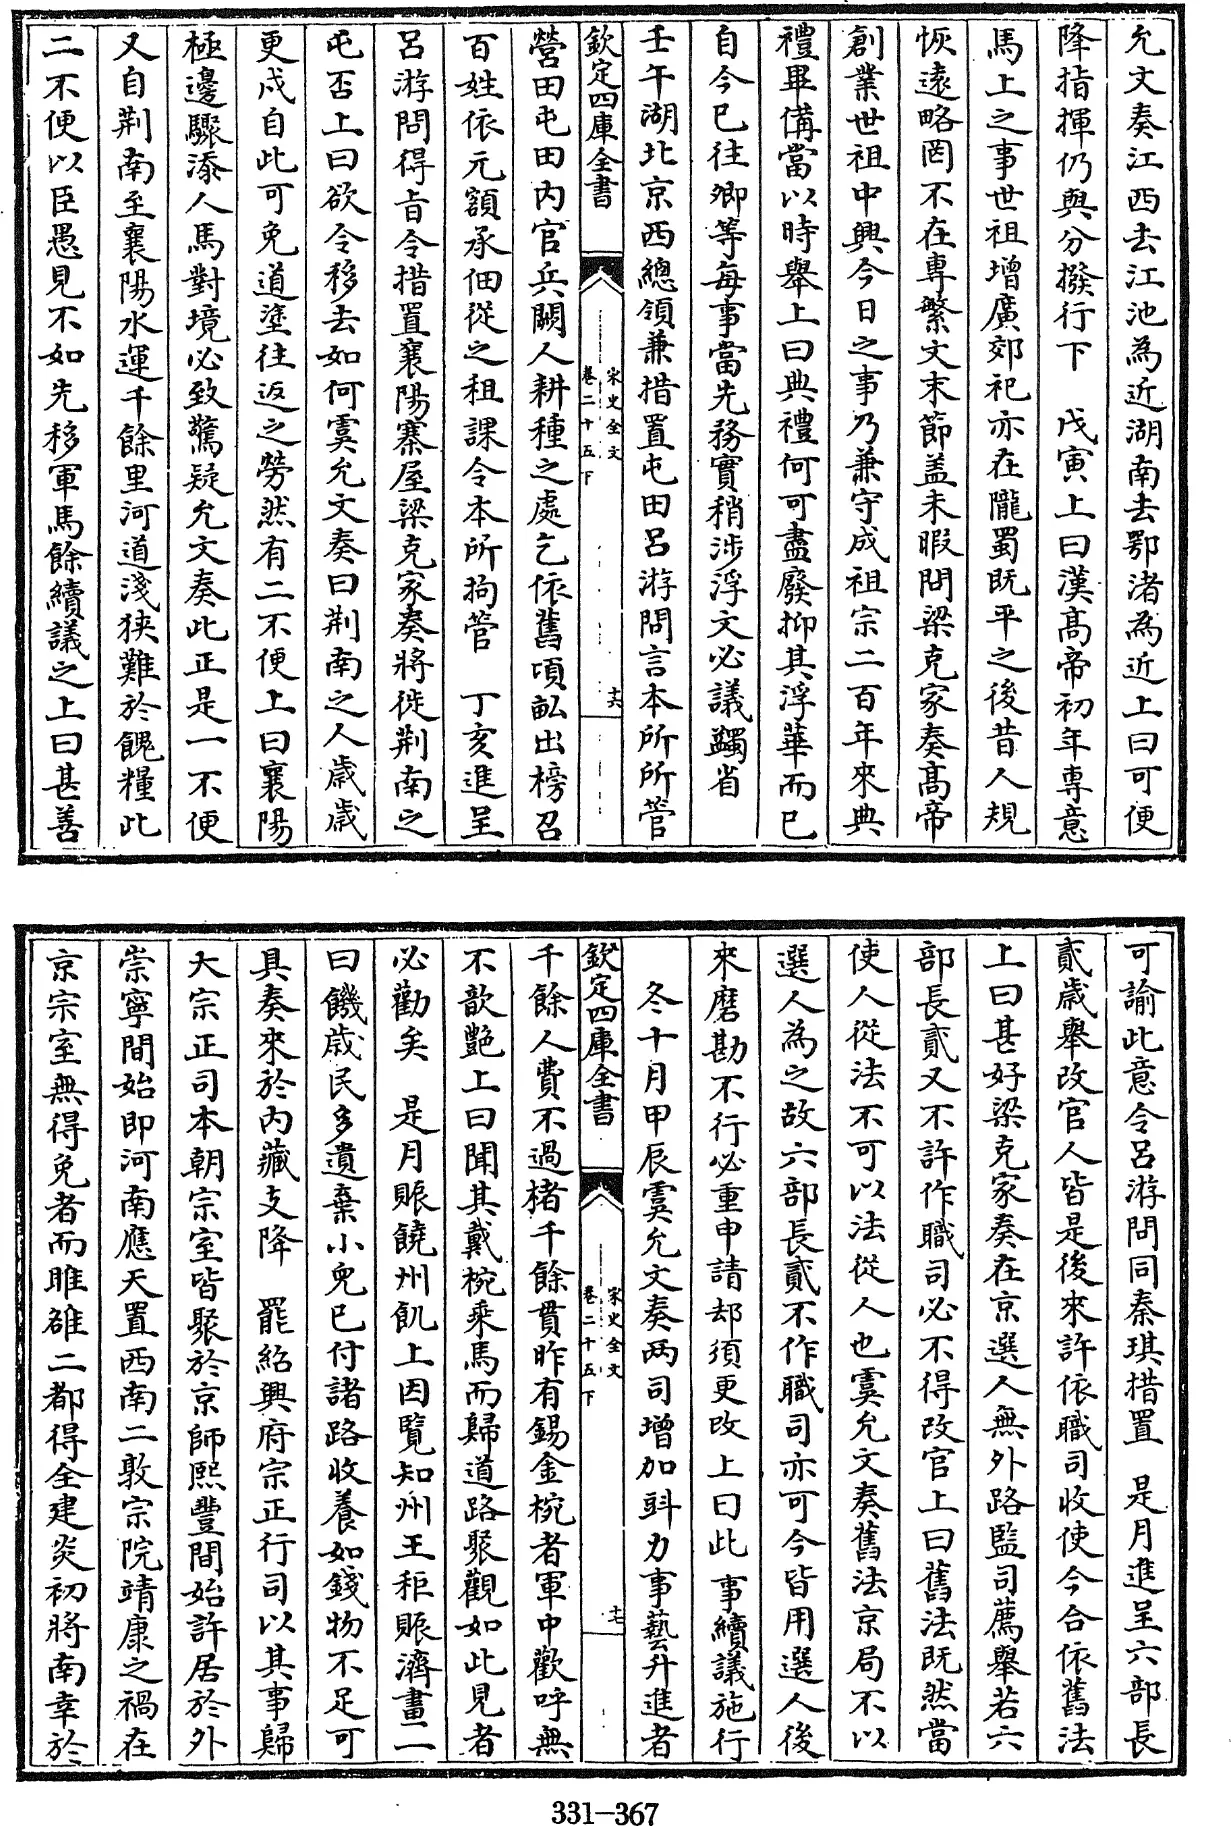 允文奏江西去江池為近湖南去鄂渚為近上曰可便
降指揮仍與分撥行下　戊寅上曰漢髙帝初年專意
馬上之事世祖增廣郊祀亦在隴蜀既平之後昔人規
恢遠略罔不在專繁文末節盖未暇問梁克家奏髙帝
創業世祖中興今日之事乃兼守成祖宗二百年來典
禮畢備當以時舉上曰典禮何可盡廢抑其浮華而已
自今已往卿等每事當先務實稍涉浮文必議蠲省
壬午湖北京西總領兼措置屯田吕游問言本所所管
欽定四庫全書
宋史全文
卷二十五下
十六
營田屯田内官兵闕人耕種之處乞依舊頃畝出榜召
百姓依元額承佃從之租課令本所拘管　丁亥進呈
呂游問得㫖令措置襄陽寨屋梁克家奏將徙荆南之
屯否上曰欲令移去如何虞允文奏曰荆南之人歲歲
更戍自此可免道塗往返之勞然有二不便上曰襄陽
極邊驟添人馬對境必致驚疑允文奏此正是一不便
又自荆南至襄陽水運千餘里河道淺狹難於餽糧此
二不便以臣愚見不如先移軍馬餘續議之上曰甚善
可諭此意令呂游問同秦琪措置　是月進呈六部長
貳歲舉改官人皆是後來許依職司收使今合依舊法
上曰甚好梁克家奏在京選人無外路監司薦舉若六
部長貳又不許作職司必不得改官上曰舊法既然當
使人從法不可以法從人也虞允文奏舊法京局不以
選人為之故六部長貳不作職司亦可今皆用選人後
來磨勘不行必重申請却須更改上曰此事續議施行
冬十月甲辰虞允文奏两司增加㪷力事藝升進者
欽定四庫全書
宋史全文
卷二十五下
十七
千餘人費不過楮千餘貫昨有錫金椀者軍中歡呼無
不歆艷上曰聞其戴椀乘馬而歸道路聚觀如此見者
必勸矣　是月賑饒州飢上因覽知州王秬賑濟畫二
曰饑歲民多遺棄小兒已付諸路收養如錢物不足可
具奏來於内藏支降　罷紹興府宗正行司以其事歸
大宗正司本朝宗室皆聚於京師熙豐間始許居於外
崇寧間始即河南應天置西南二敦宗院靖康之禍在
京宗室無得免者而睢雒二都得全建炎初將南幸於
331-367